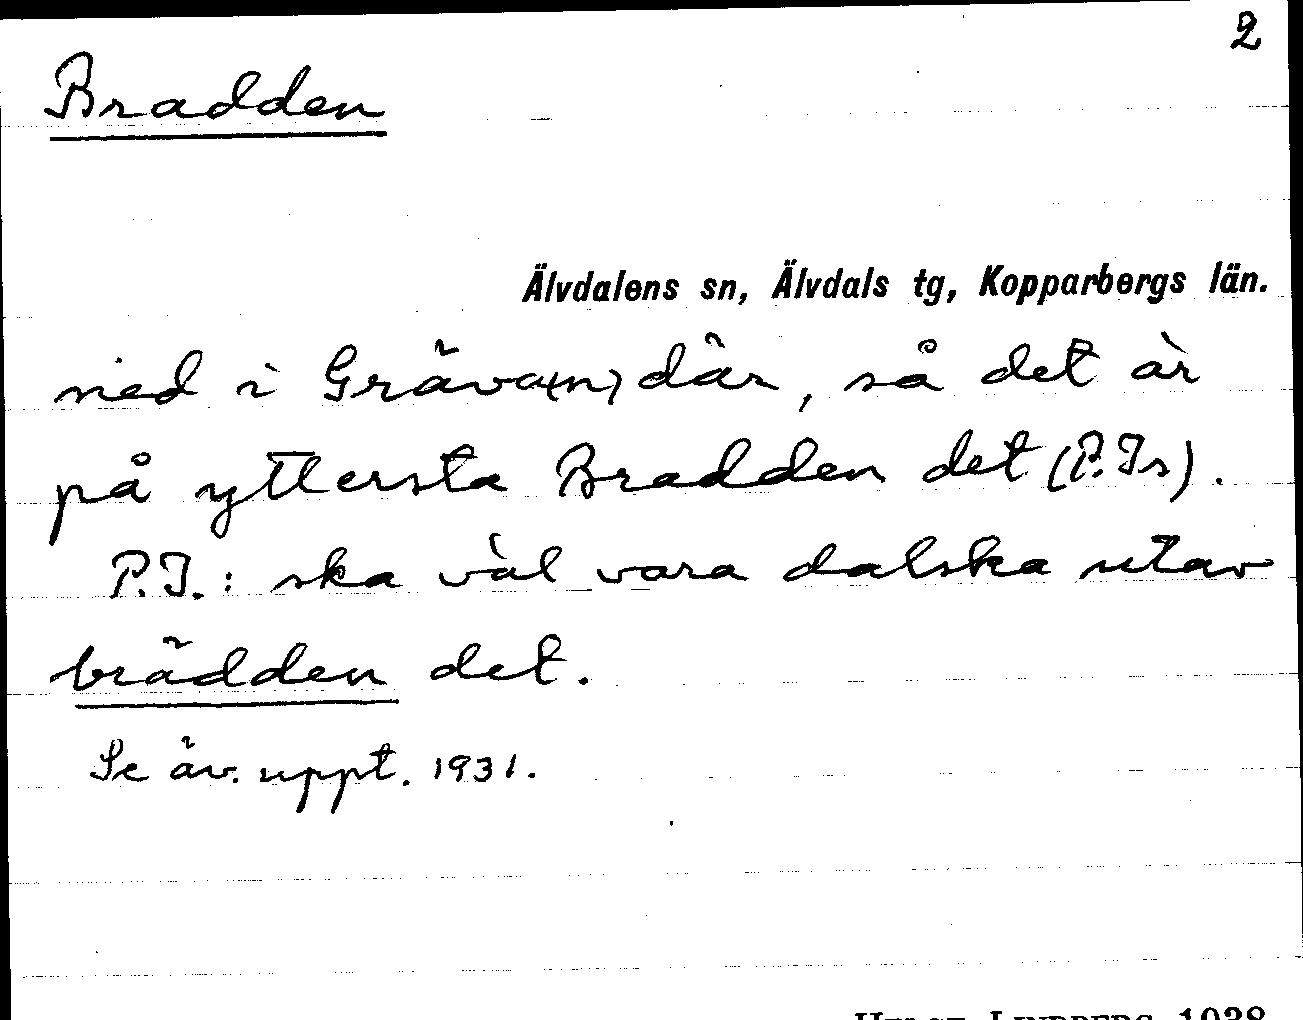 2
Bradden
Älvdalens sn, Älvdals tg, Kopparbergs län.
ned i Gräva(n) där, så det är
på yttersta Bradden det (P.Is).
P.I.: ska väl vara dalska utav
brädden det.
Se äv. uppt. 1931.